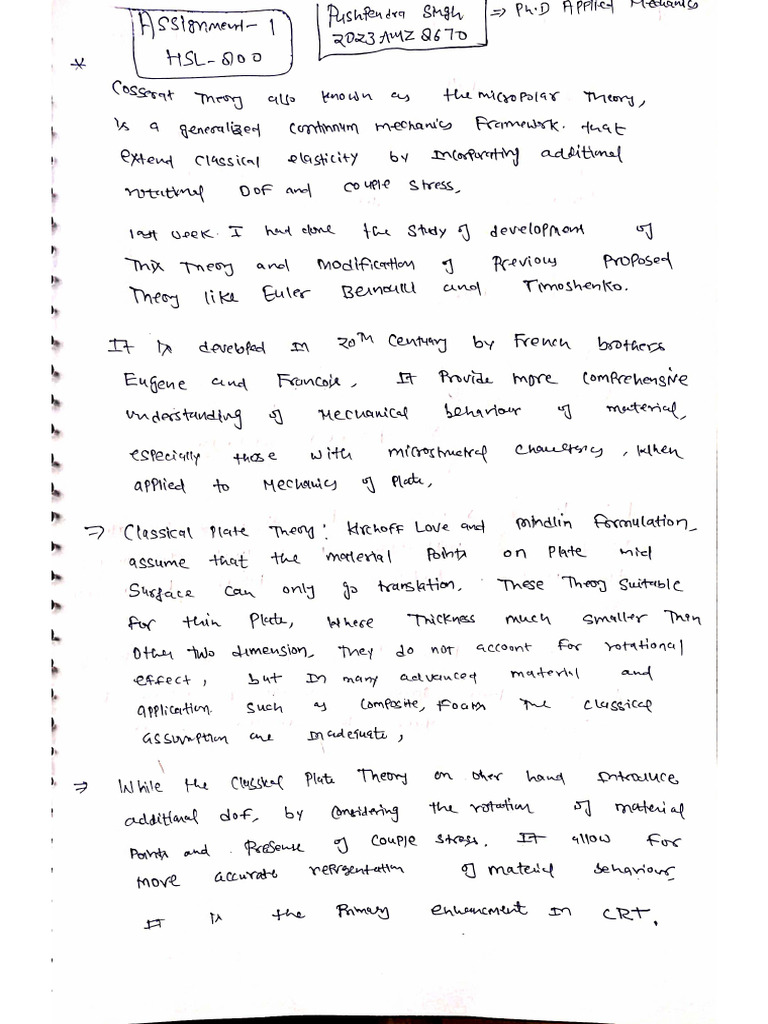 Assignment-1
HSL-800
Pushpendra Singh
2023AMZ8670
⇒ Ph.D Applied Mechanics
*
Cosserat Theory also known as the micropolar Theory,
is a generalized continnum mechanics Framework. that
extend classical elasticity by incorparating additional
rotational DOF and couple stress,
last week. I had done the study of development of
This Theory and modification of Previous Proposed
Theory like Euler Bernoulli and Timoshenko.
It is developed in 20TH Century by French brothers
Eugene and Francois, It Provide more comprehensive
understanding of mechanical behaviour of material,
especially those with microstructral , When
applied to Mechanics of Plate,
⇒ Classical Plate Theory: Kirchoff Love and mindlin formulation
assume that the material Points on Plate mid
Surface can only go translation. These Theory suitable
for thin Plate, Where Thickness much smaller Then
Other two dimension, They do not account for rotational
effect, but in many advanced material and
application such as composite, Foam The classical
assumption are inadequate,
⇒ While the Classical Plate Theory on other hand introduce
additional dof, by considering the rotation of material
Points and Presense of couple stress. It allow for
more accurate representation of material behaviour
It is the Primary enhancment in CRT.